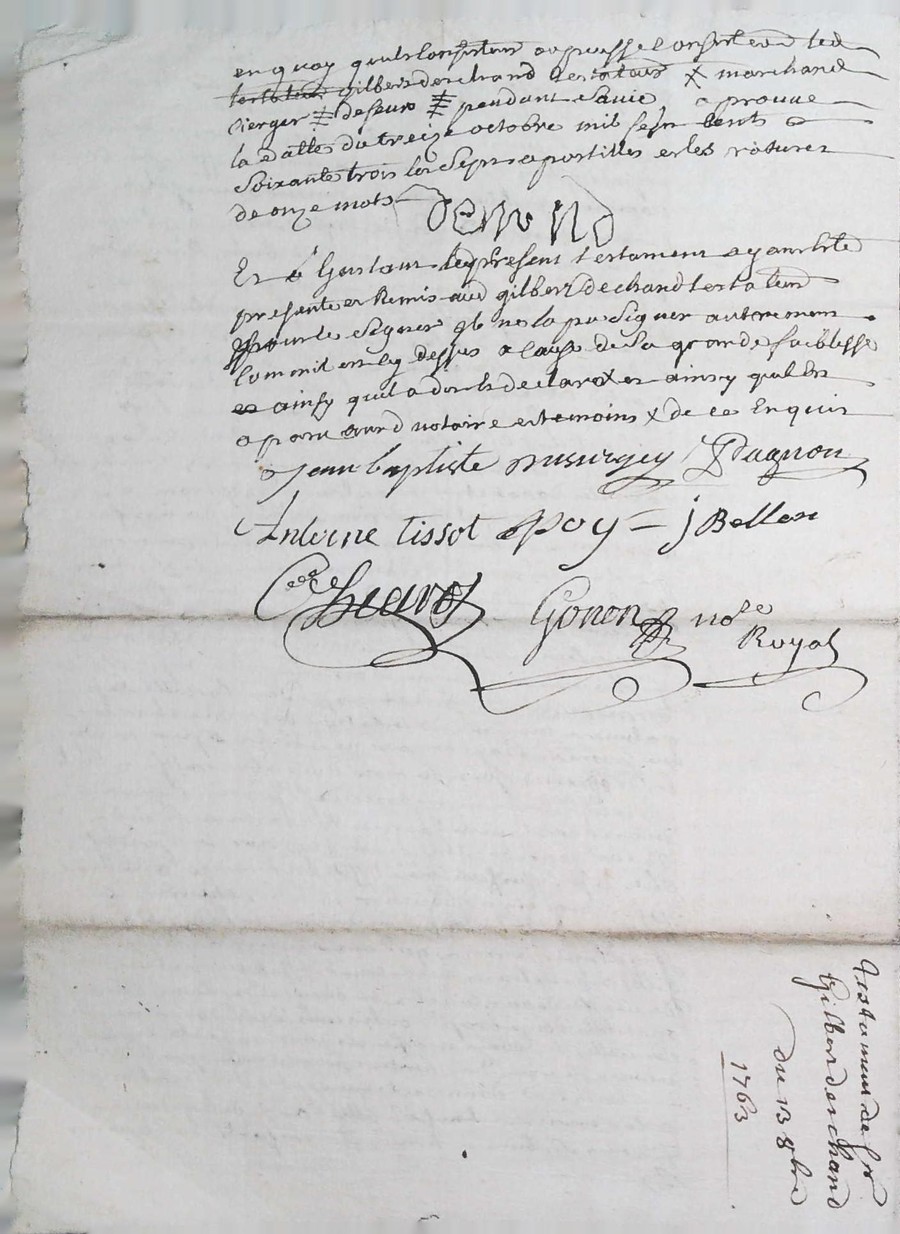 en quoy quils Consistent ou puisse Consister led
testateur gilbert deschand testateur X marchand
Cierger ‡ de feurs ‡ pendant sa vie, aprouve
la datte du treize octobre mil sept Cents
Soixante trois les Sept apostilles et les ratures
de onze mots
Et à Linstant le present testament ayant ete
presenté et Remis aud gilbert deschand testateur
pour le Signer jl ne la pu Signer autrement
Comme il est cy dessus a Cause de Sa grande faiblesse
ainsy quil a dit et declaré et ainsy quil est
aparu aud notaire et temoins X de ce Enquis
Jean baptiste Pugnon
Antoine tissot Epoy J Bellon
Gonon no.re
Royal
Testament de Sr
Gilbert deschand
du 13 8bre
1763